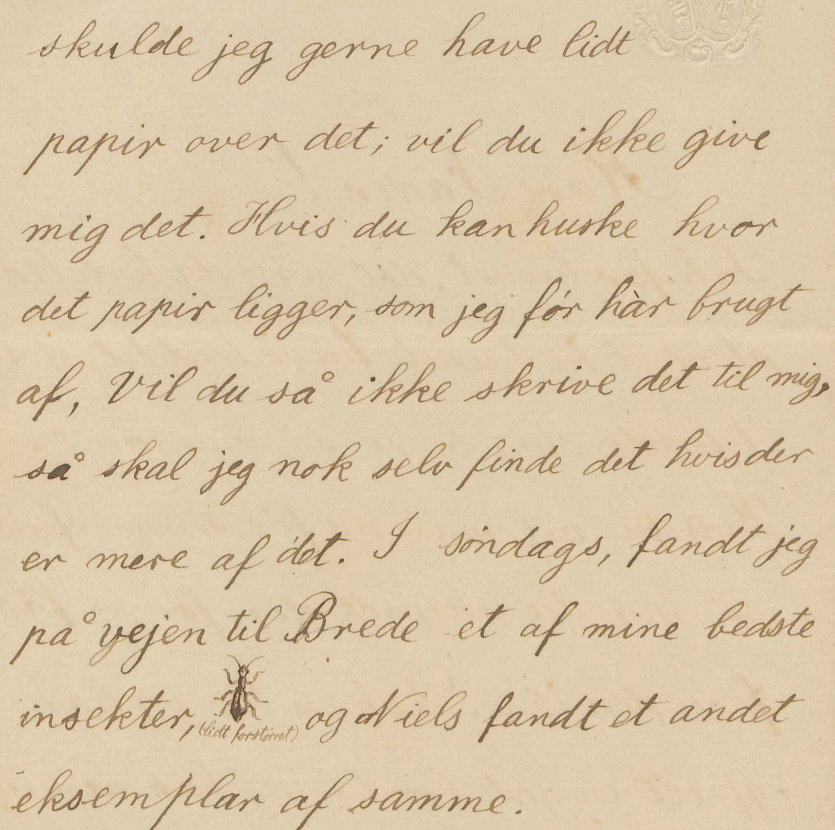 skulde jeg gerne have lidt
papir over det; vil du ikke give
mig det. Hvis du kan huske hvor
det papir ligger, som jeg før har brugt
af, Vil du så ikke skrive det til mig,
så skal jeg nok selv finde det hvis der
er mere af det. I søndags, fandt jeg
på vejen til Brede et af mine bedste
insekter, (lidt forstørret) og Niels fandt et andet
eksemplar af samme.